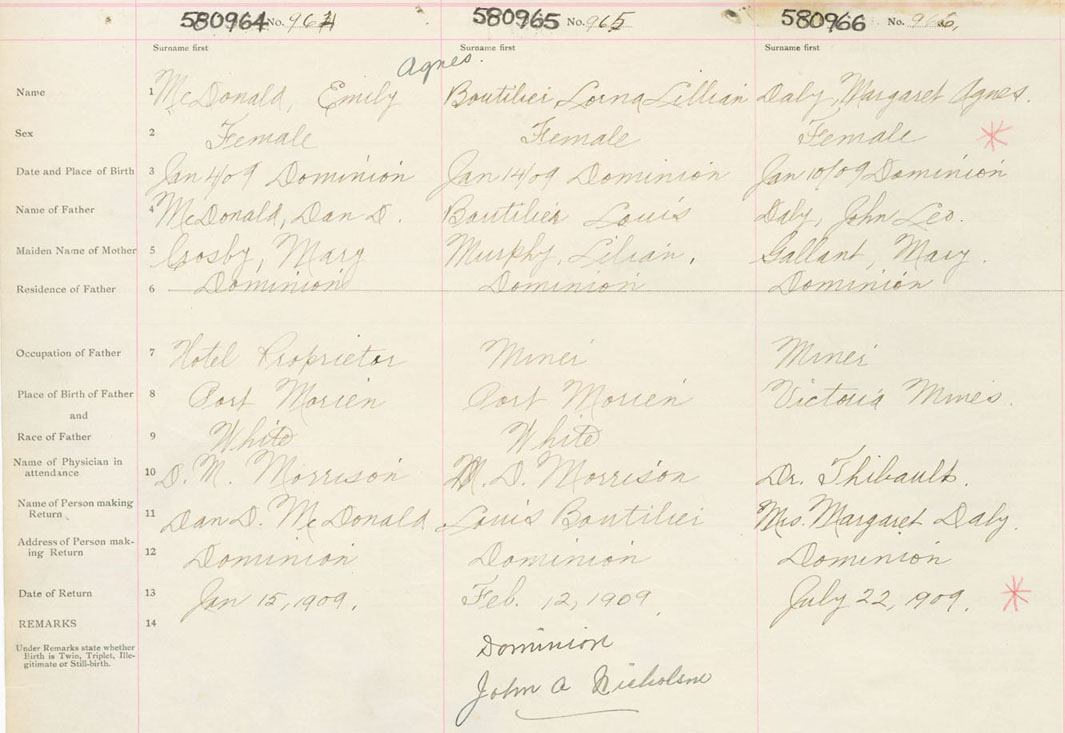 580964 No. 964 580965 No. 965 580966 No. 966,
Surname first Surname first Surname first
Agnes.
Name 1 McDonald, Emily Boutilier, Lorna Lillian Daly, Margaret Agnes.
Sex 2 Female Female Female
Date and Place of Birth 3 Jan 4/09 Dominion Jan 14/09 Dominion Jan 10/09 Dominion
Name of Father 4 McDonald, Dan D. Boutilier Louis Daly, John Leo.
Maiden Name of Mother 5 Crosby, Mary Murphy, Lilian. Gallant, Mary.
Residence of Father 6 Dominion Dominion Dominion
Occupation of Father 7 Hotel Proprietor Miner Miner
Place of Birth of Father 8 Port Morien Port Morien Victoria Mines.
and
Race of Father 9 White White
Name of Physician in
attendance 10 D. M. Morrison M. D. Morrison Dr. Thibault.
Name of Person making
Return 11 Dan D. McDonald Louis Boutilier Mrs. Margaret Daly.
Address of Person mak-
ing Return 12 Dominion Dominion Dominion
Date of Return 13 Jan 15, 1909. Feb. 12, 1909. July 22, 1909.
REMARKS 14
Under Remarks state whether
Birth is Twin, Triplet, Ille-
gitimate or Still-birth.
Dominion
John A Nicholson